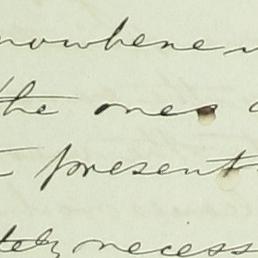 nowhere
the ones
present
tely necess